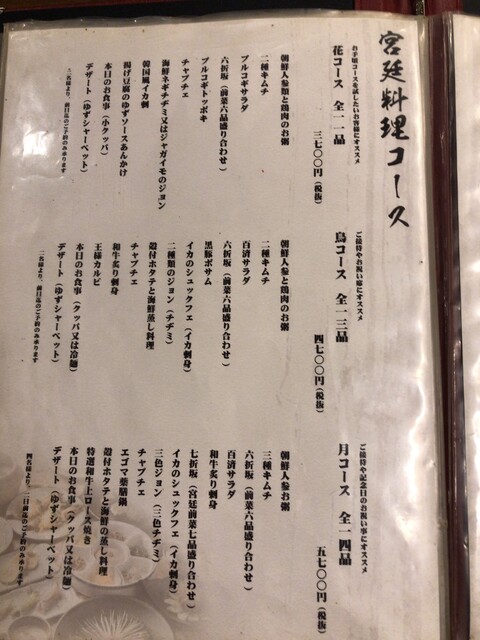 宮廷料理コース
お手頃コースを試したいお客様にオススメ
花コース 全一一品
三七〇〇円(税抜)
朝鮮人参類と鶏肉のお粥
二種キムチ
プルコギサラダ
六折坂(前菜六品盛り合わせ)
プルコギトッポキ
チャプチェ
海鮮ネギチヂミ又はジャガイモのジョン
韓国風イカ刺
揚げ豆腐のゆずソースあんかけ
本日のお食事(小クッパ)
デザート(ゆずシャーベット)
二名様より、前日迄のご予約のみ承ります
ご接待やお祝い席にオススメ
鳥コース 全一三品
四七〇〇円(税抜)
朝鮮人参と鶏肉のお粥
二種キムチ
百済サラダ
六折坂(前菜六品盛り合わせ)
黒豚ポサム
イカのシュックフェ(イカ刺身)
二種類のジョン(チヂミ)
殻付ホタテと海鮮蒸し料理
チャプチェ
和牛炙り刺身
王様カルビ
本日のお食事(クッパ又は冷麺)
デザート(ゆずシャーベット)
二名様より、前日迄のご予約のみ承ります
ご接待や記念日のお祝い事にオススメ
月コース 全一四品
五七〇〇円(税抜)
朝鮮人参お粥
三種キムチ
六折坂(前菜六品盛り合わせ)
百済サラダ
和牛炙り刺身
七折坂(宮廷前菜七品盛り合わせ)
イカのシュックフェ(イカ刺身)
三色ジョン(三色チヂミ)
チャプチェ
エゴマ薬膳鍋
殻付ホタテと海鮮の蒸し料理
特選和牛上ロース焼き
本日のお食事(クッパ又は冷麺)
デザート(ゆずシャーベット)
四名様より、二日前迄のご予約のみ承ります